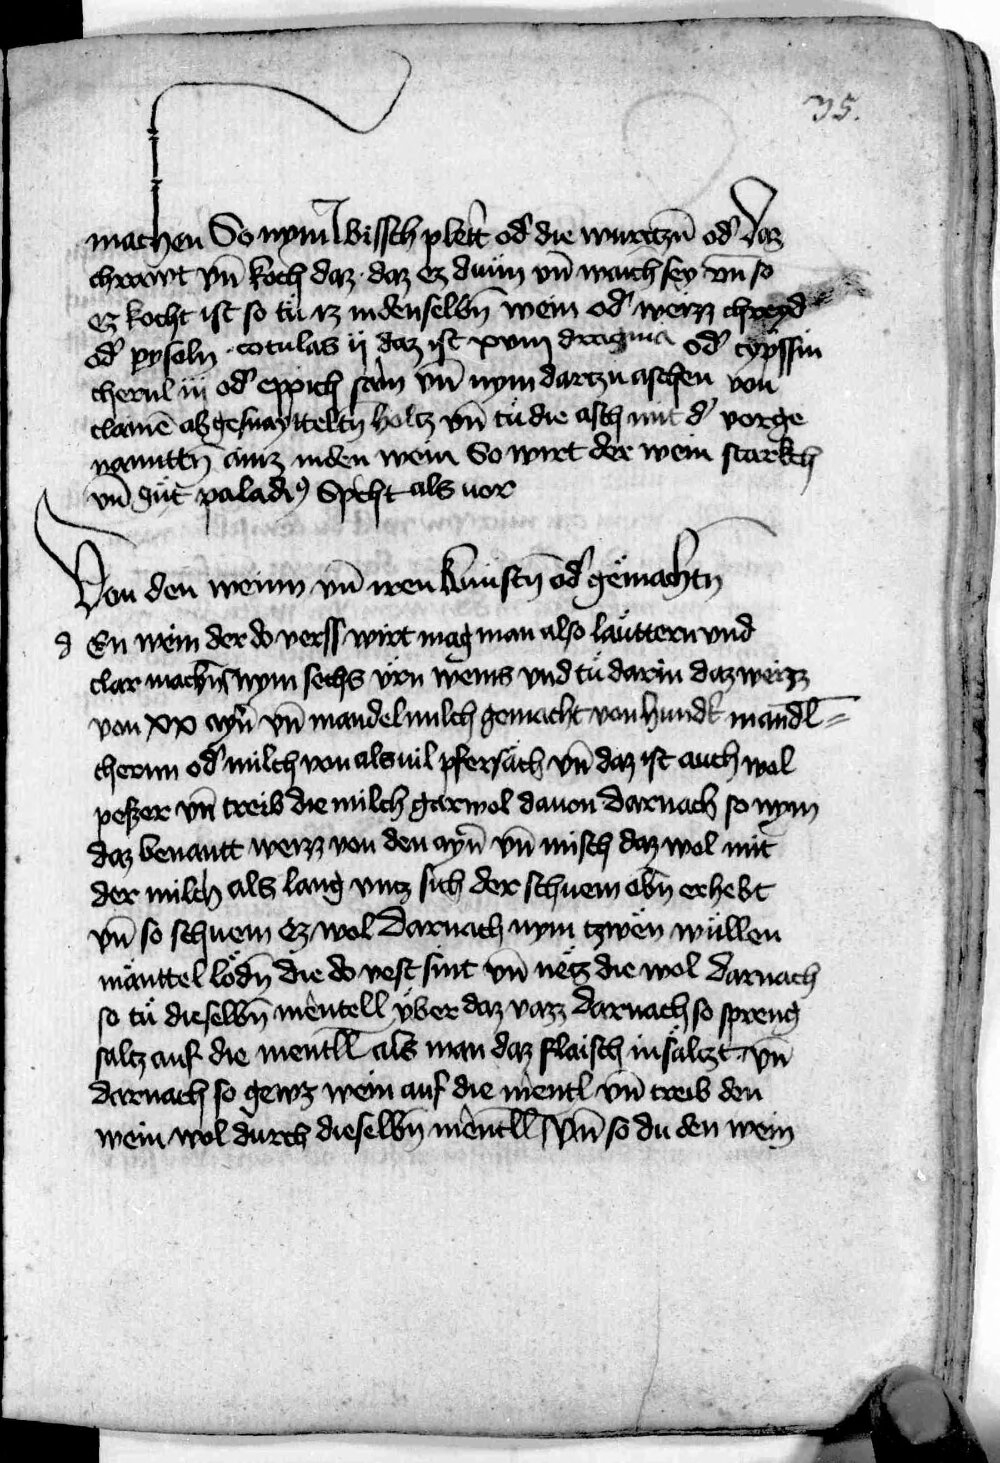 35.
machen So nym Ibissch pleter od' die wurtzn̄ od' daz
chrawt vn̄ koch daz · daz ez dün vn̄ waich sey vn̄ so
ez kocht ist so tu̇ iz in denselbn̄ wein od' weizz chreyd
od' pysoln · cotulas ij daz ist xviii dragma od' cypssin
chernl iij od' eppich sam vn̄ nym dartzu aschen von
clainē abgesnayteltn̄ holtz vn̄ tu̇ die asch mit d' vorge
nanttn̄ ainz in den wein So wirt der wein starkch
vn̄ gu̇t paladi9 Spricht als vor
Von den weinn vn̄ iren künstn̄ od' gemächtn̄
d En wein der do verss wirt mag man also lauttern vnd
clar machn̄ nym sechs vrn weins vnd tu̇ darin daz weizz
von xx ayrn̄ vn̄ mandelmilch gemacht von hundert mandl=
chernn od' milch von als uil pfersäch vn̄ daz ist auch wol
peszer vn̄ treib die milch gar wol dauon darnach so nym
daz benantt weizz von den ayrn̄ vn̄ misch daz wol mit
der milch als lang vntz sich der schuem obn̄ erhebt
vn̄ so schuem ez wol Darnach nym tzwen wüllen
mänttel lödn̄ die do vest sint vn̄ netz die wol darnach
so tu̇ dieselbn̄ mentell über daz vazz darnach so spreng
saltz auf die mentll als man daz flaisch insältzt vn̄
darnach so gewz wein auf die mentl vn̄ treib den
wein wol durch dieselbn̄ mentll Vn̄ so du den wein